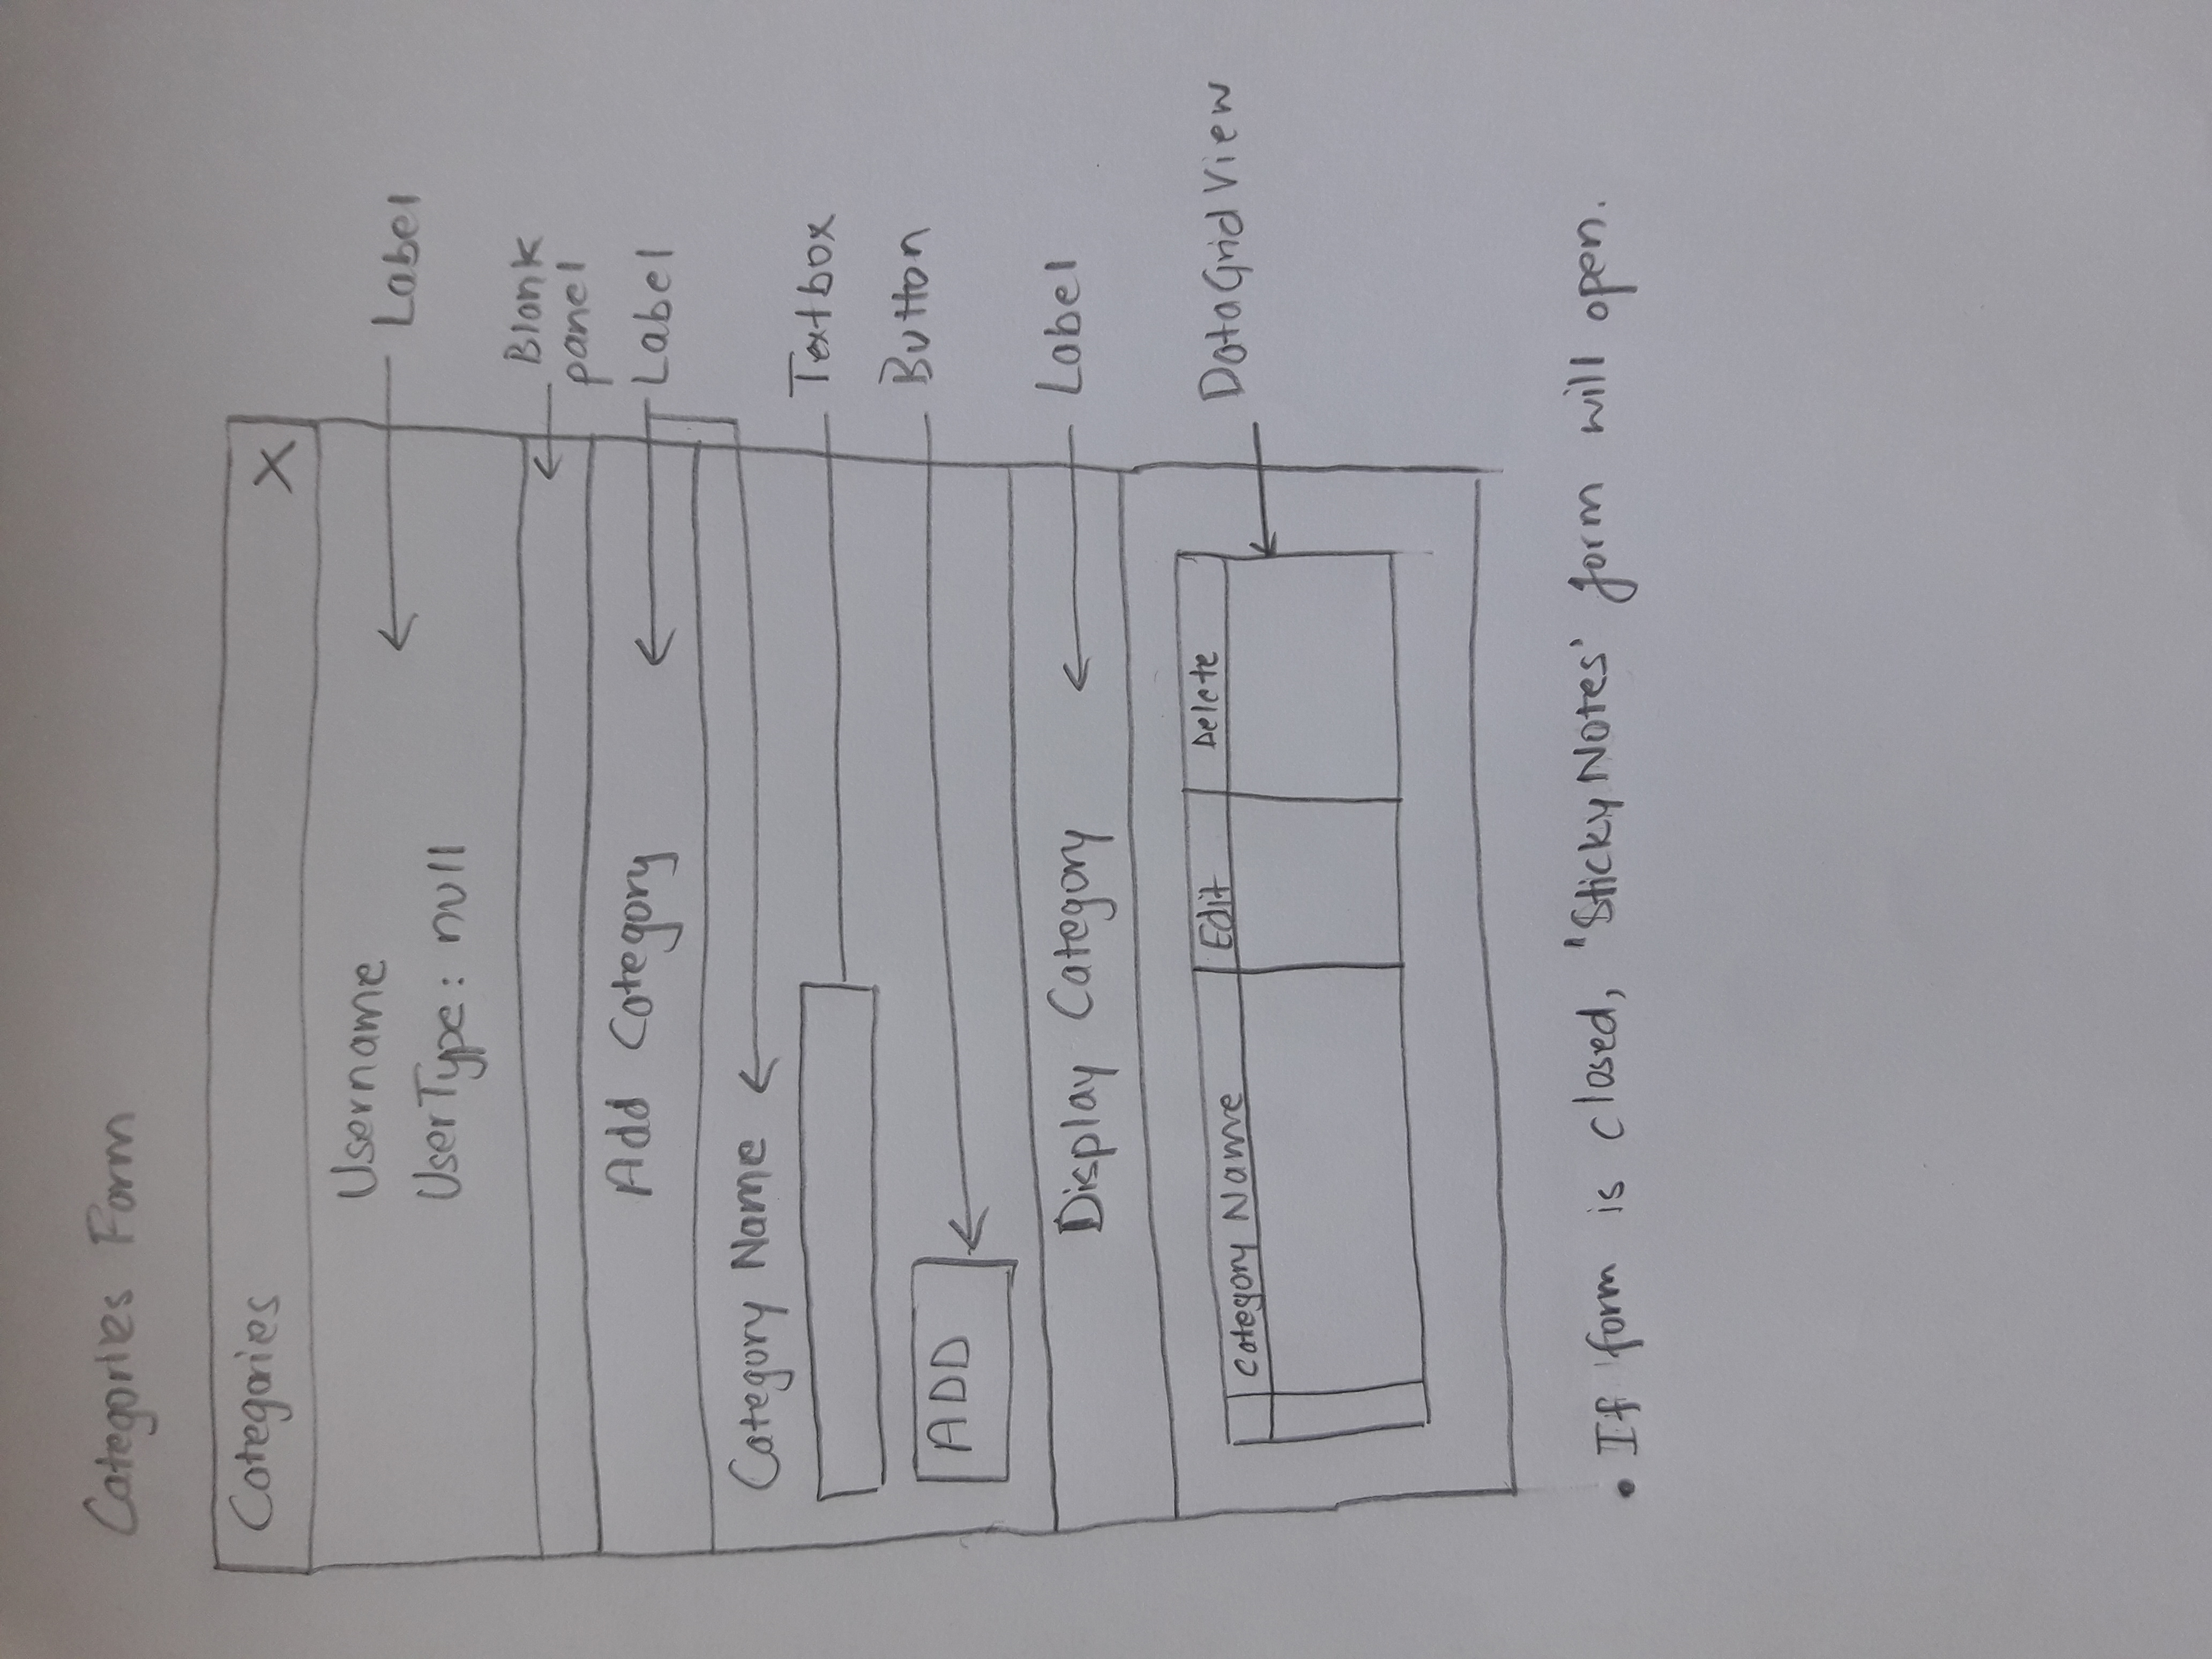 Categories Form
Categories X
Username
Label
UserType: null
Blank
panel
Add Category
Label
Category Name
Textbox
Button
ADD
Display Category
Label
Category Name Edit Delete
DataGridView
• If form is closed, "StickyNotes' form will open.